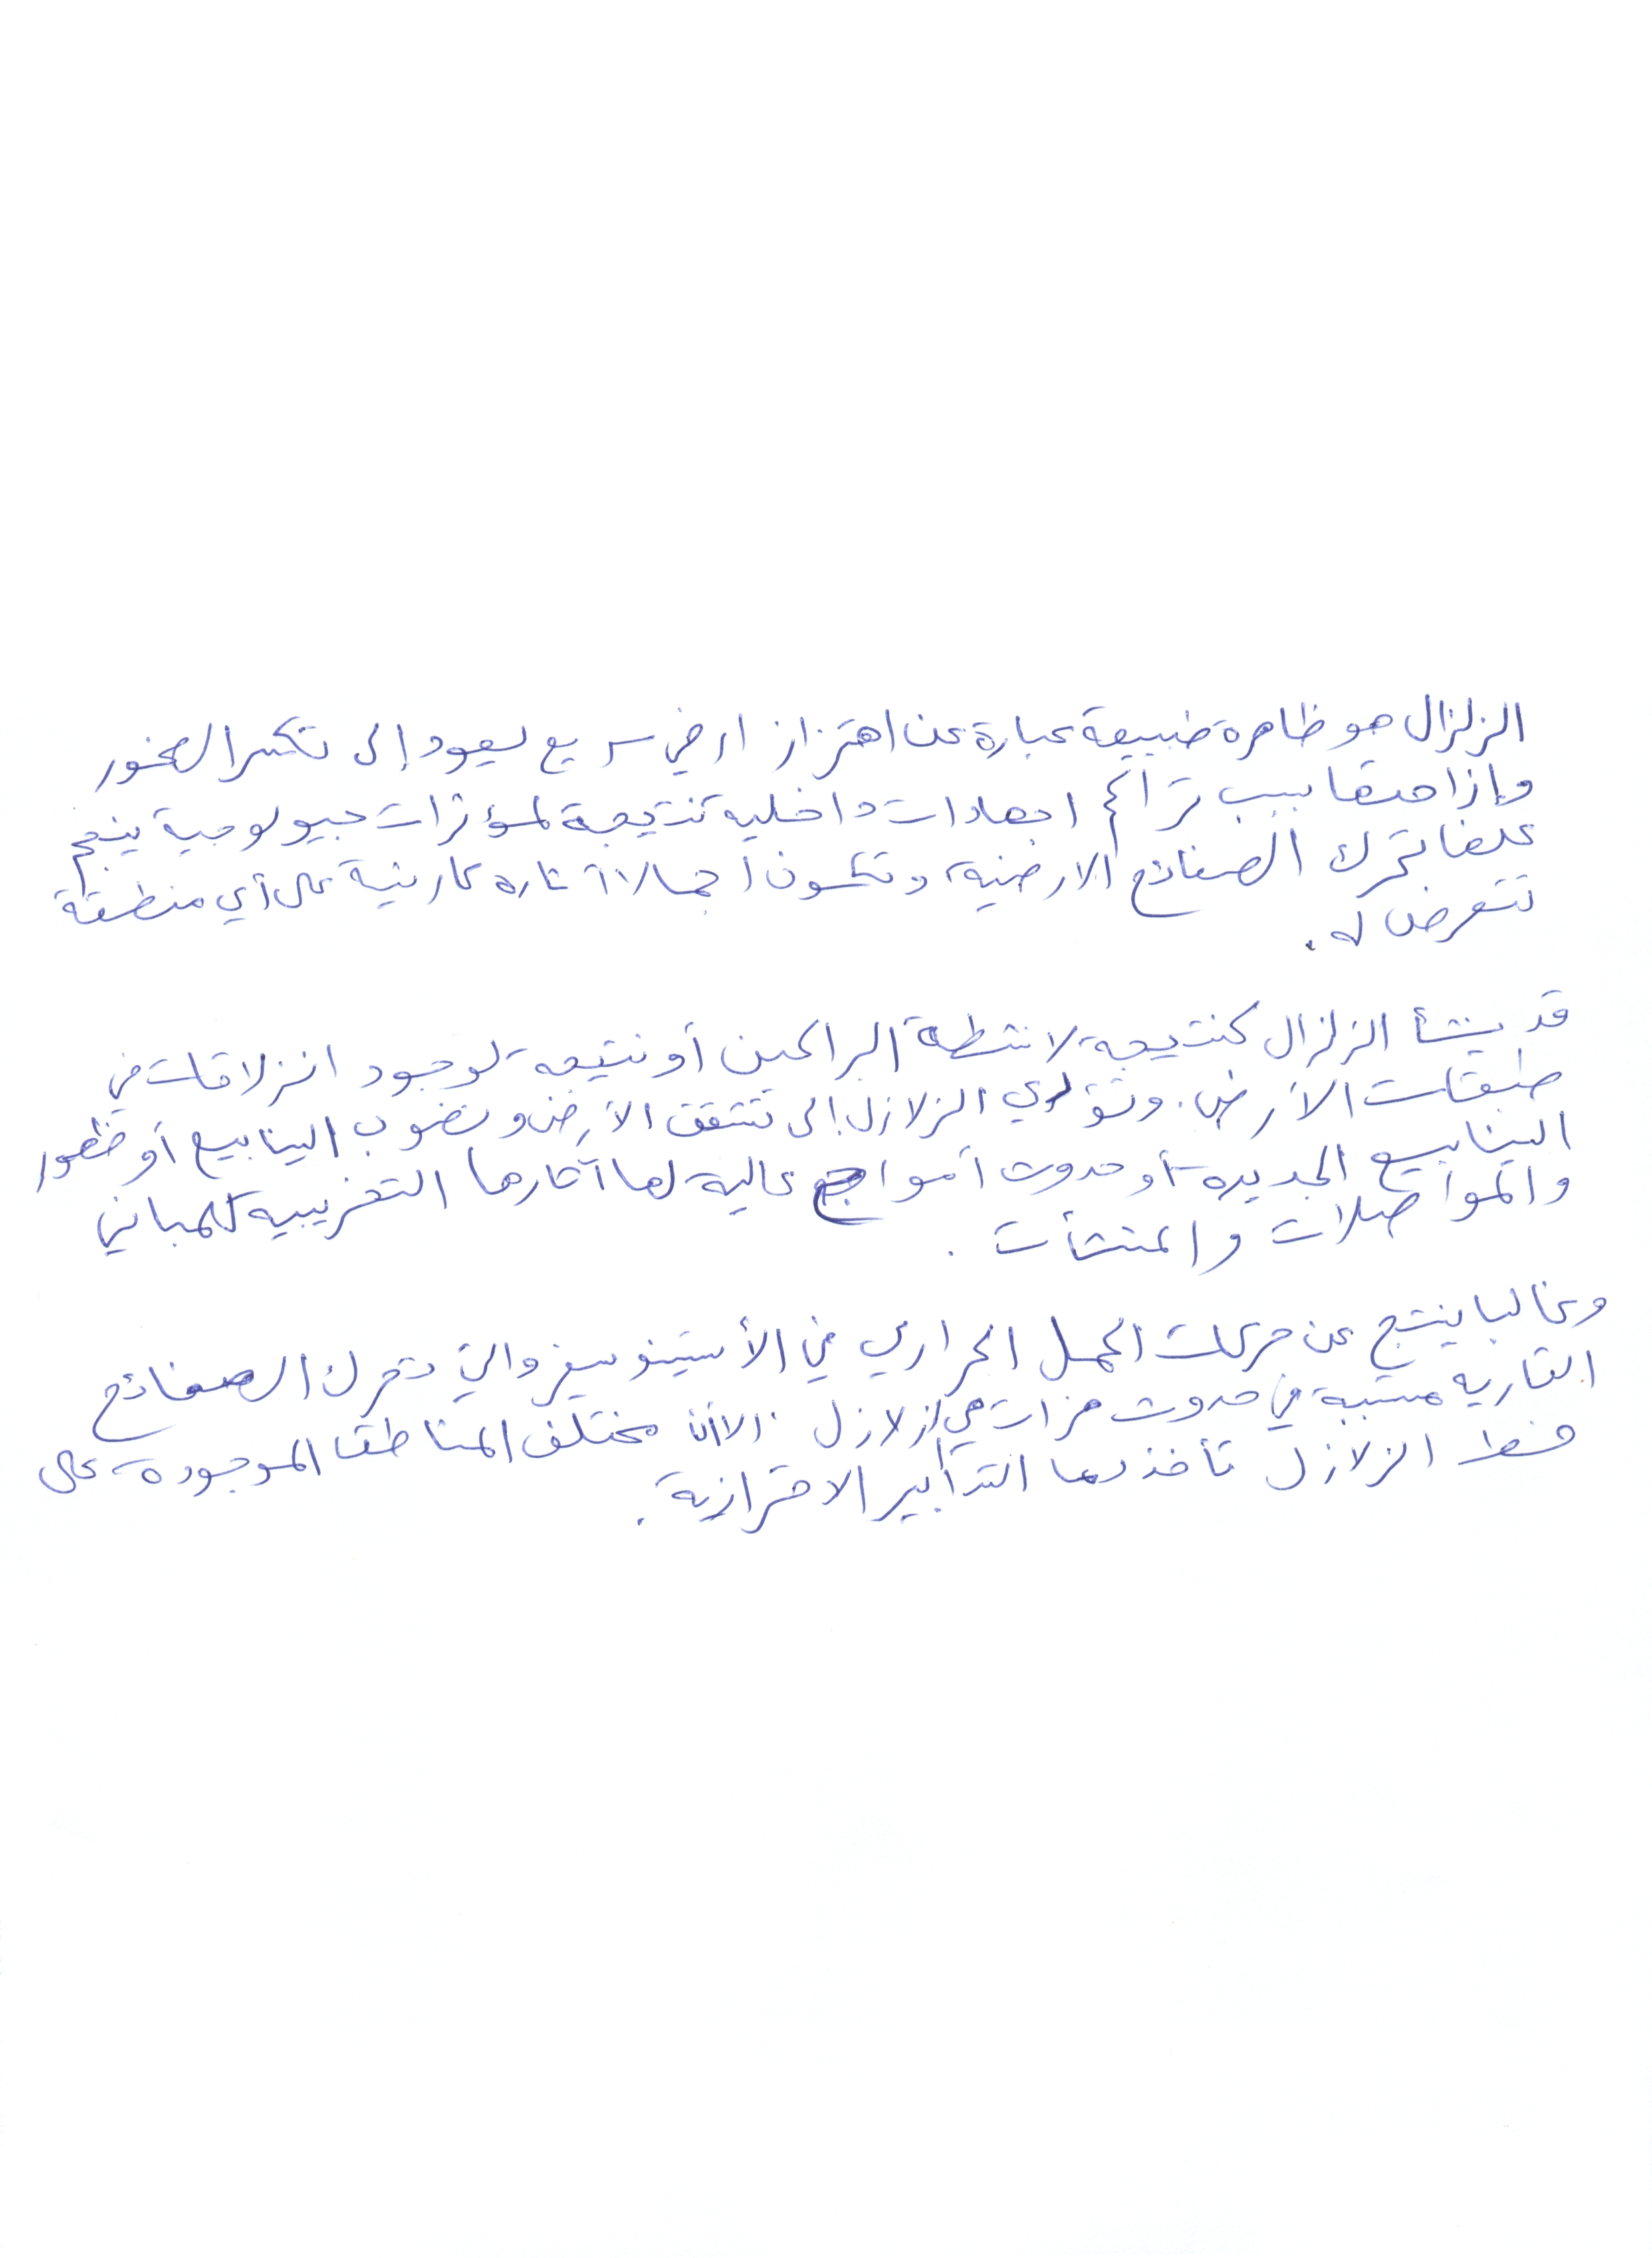 الزلزال هو ظاهرة طبيعة عبارة عن اهتزاز ارضي سريع يعود إلى تكسر الصخور
وإزاحتها بسبب تراكم اجهادات داخليه نتيجة لمؤثرات جيولوجية ينجم
عنها تحرك الصفائح الارضية، وتكون اجمالا آثاره كارثية على أي منطقة
تتعرض له.
قد ينشأ الزلزال كنتيجة لانشطة البراكين أو نتيجة لوجود انزلاقات في
طبقات الأرض. وتؤدي الزلازل إلى تشقق الأرض ونضوب الينابيع أو ظهور
الينابيع الجديدة أو حدوث أمواج عالية لها آثارها التخريبيه للمباني
والمواصلات والمنشأت.
وغالبا ينتج عن حركات الحمل الحراري في الأستينوسفير والتي تحرك الصفائح
القاريه مسببة في حدوث هزات هي الزلازل. الا أن مختلف المناطق الموجودة على
خط الزلازل تأخذ لها التدابير الاحترازية.